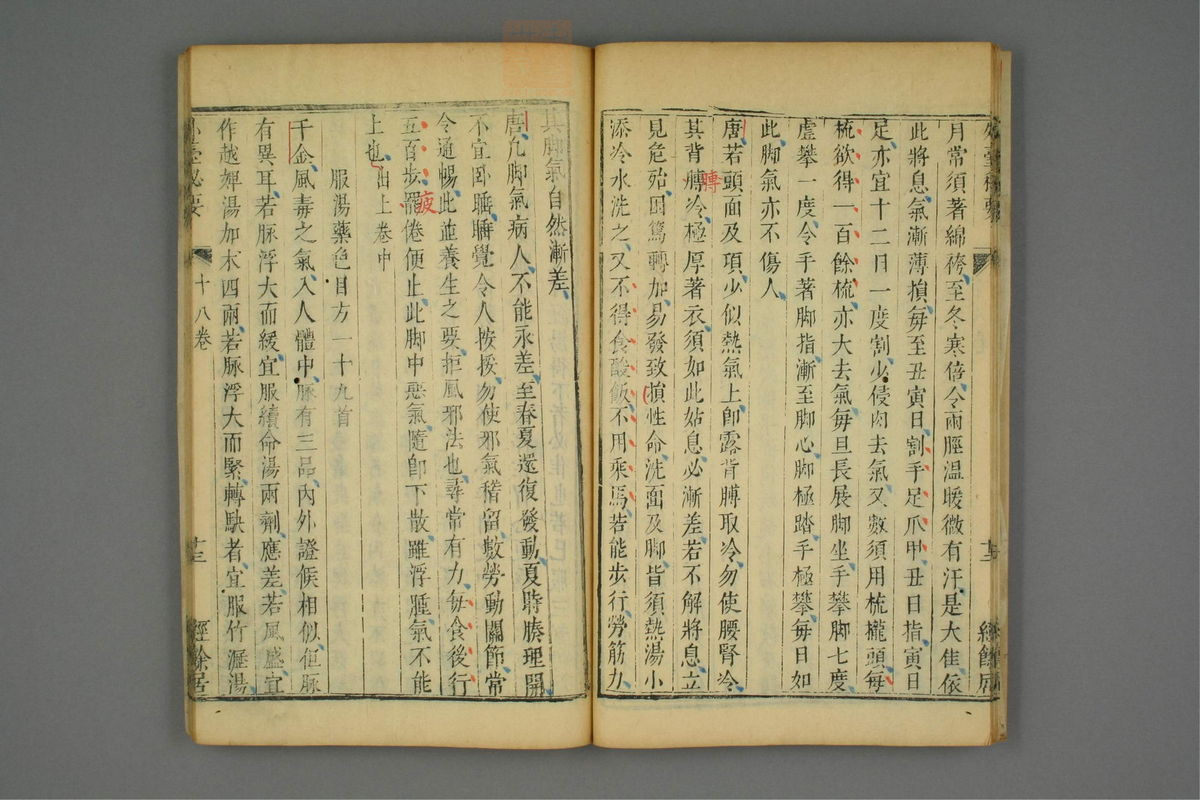 月常須著綿袴至冬寒倍令兩脛溫暖微有汗是大佳依
此將息氣漸薄損每至丑寅日割手足爪甲丑日指寅日
足亦宜十二日一度割少侵肉去氣又數須用梳櫳頭每
梳欲得一百餘梳亦大去氣每旦長展脚坐手攀脚七度
虛攀一度令手著脚指漸至脚心脚極踏手極攀每日如
此脚氣亦不傷人
唐若頭面及項少似熱氣上卽露背膊取冷勿使腰腎冷
其背膊冷極厚著衣須如此姑息必漸差若不解將息立
膊
見危殆困篤轉加易發致損性命洗面及脚皆須熱湯小
添冷水洗之又不得食酸飯不用乘馬若能步行勞筋力
其脚氣自然漸差
唐凡脚氣病人不能永差至春夏還復發動夏時腠理開
不宜卧睡睡覺令人按挼勿使邪氣稽留數勞動關節常
令通暢此並養生之要拒風邪法也尋常有力每食後行
五百步罷倦便止此脚中惡氣隨卽下散雖浮腫氣不能
疲
上也出上卷中
服湯藥色目方一十九首
千金風毒之氣入人體中脉有三品內外證候相似但脉
有異耳若脉浮大而緩宜服續命湯兩劑應差若風盛宜
作越婢湯加朮四兩若脉浮大而緊轉駃者宜服竹瀝湯
外臺祕要
十八卷
十三
經餘居